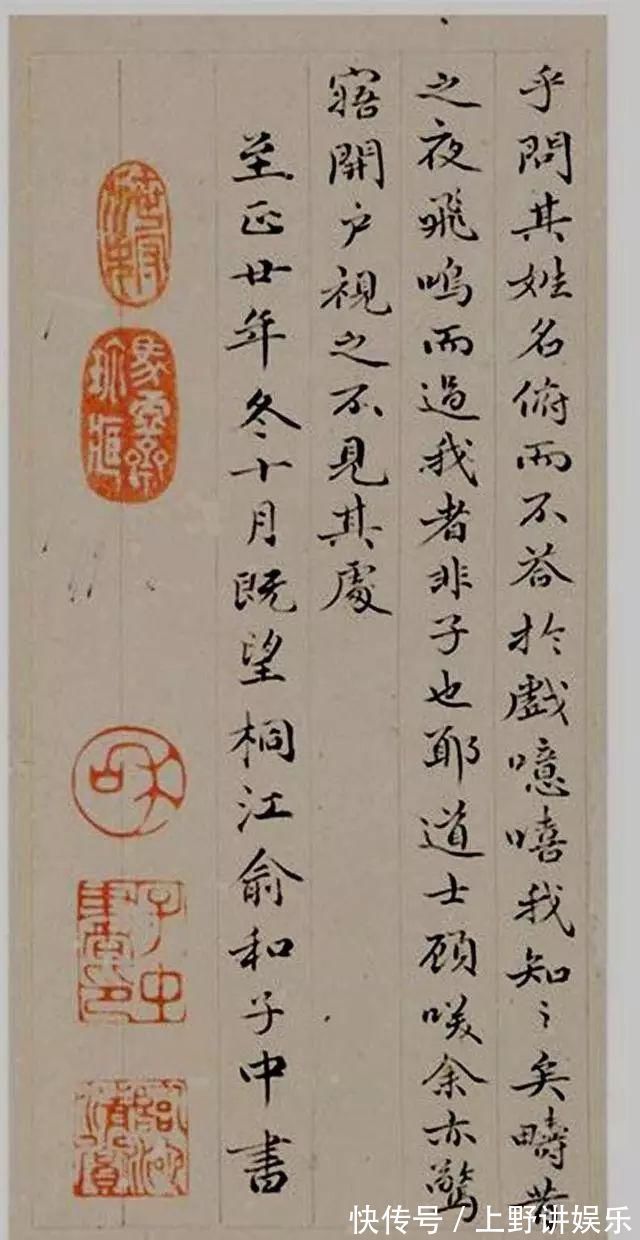 乎問其姓名俯而不荅扵戲噫嘻我知之矣疇昔
之夜飛鳴而過我者非子也耶道士顧咲余亦驚
寤開户視之不見其處
至正廿年冬十月既望桐江俞和子中書
子中
快传号/上野讲娱乐